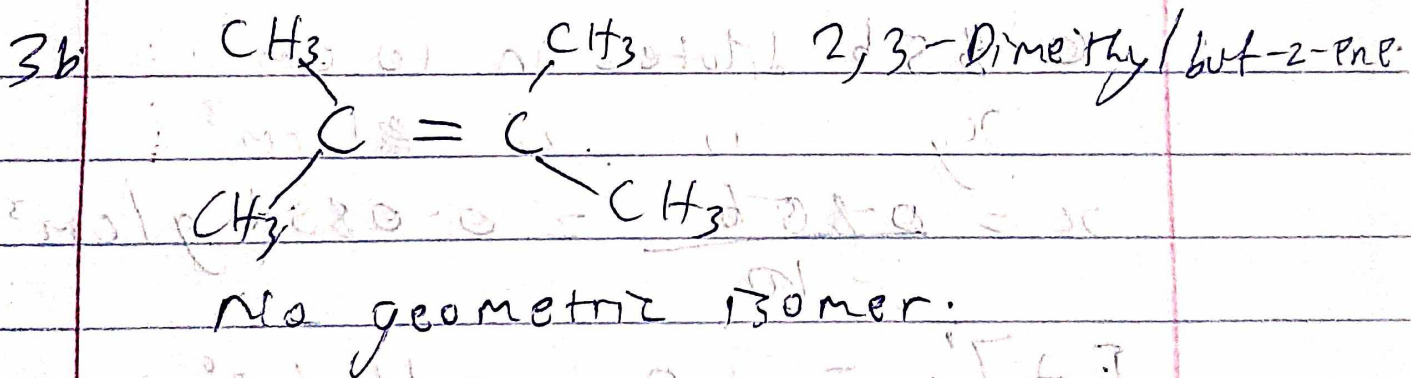 3b CH3 CH3 2,3-Dimethyl but-2-ene.
C = C
CH3 CH3
No geometric isomer.